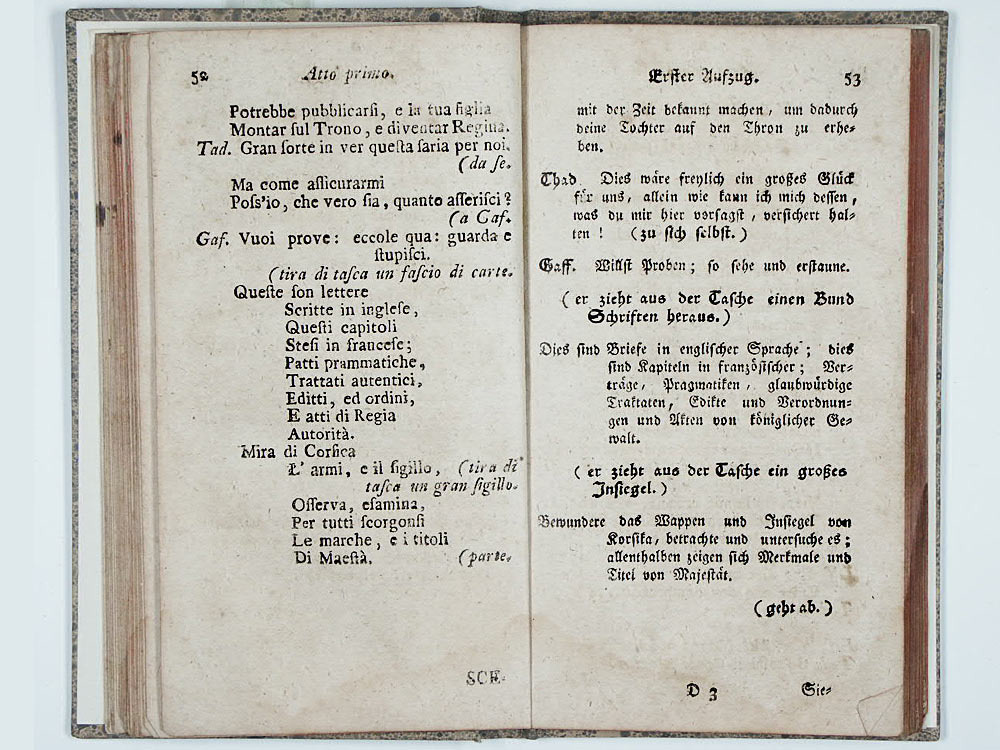 52 Atto primo.
Potrebbe pubblicarſi, e la tua figlia
Montar ſul Trono, e diventar Regina.
Tad. Gran ſorte in ver queſta ſaria per noi.
(da ſe.
Ma come aſſicurarmi
Poſs'io, che vero ſia, quanto aſſeriſci?
(a Gaf.
Gaf. Vuoi prove: eccole qua: guarda e
ſtupiſci.
(tira di taſca un faſcio di carte.
Queſte ſon lettere
Scritte in ingleſe,
Queſti capitoli
Steſi in franceſe;
Patti prammatiche,
Trattati autentici,
Editti, ed ordini,
E atti di Regia
Autorità.
Mira di Corſica
L' armi, e il ſigillo, (tira di
taſca un gran ſigillo.
Oſſerva, eſamina,
Per tutti ſcorgonſi
Le marche, e i titoli
Di Maeſtà. (parte.
SCE-
Erſter Aufzug. 53
mit der Zeit bekannt machen, um dadurch
deine Tochter auf den Thron zu erhe⸗
ben.
Thad. Dies wäre freylich ein großes Glück
für uns, allein wie kann ich mich deſſen,
was du mir hier vorſagſt, verſichert hal⸗
ten! (zu ſich ſelbſt.)
Gaff. Willſt Proben; ſo ſehe und erſtaune.
(er zieht aus der Taſche einen Bund
Schriften heraus.)
Dies ſind Briefe in engliſcher Sprache; dies
ſind Kapiteln in französiſcher; Ver⸗
träge, Pragmatiken, glaubwürdige
Traktaten, Edikte und Verordnun⸗
gen und Akten von königlicher Ge⸗
walt.
(er zieht aus der Taſche ein großes
Inſiegel.)
Bewundere das Wappen und Inſiegel von
Korſika, betrachte und unterſuche es;
allenthalben zeigen ſich Merkmale und
Titel von Majeſtät.
(geht ab.)
D 3 Sie⸗